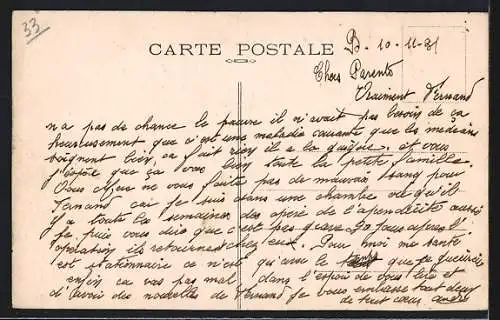 33
CARTE POSTALE
B. 10-11-31
Chers Parents
Vraiment Fernand
n'a pas de chance le pauvre il n'avait pas besoin de ça
heureusement que c'est une maladie courante que les médecins
soignent bien, ca fait rien il a la guigne. et vous
j'espère que ça vas bien toute la petite famille.
Vous ne vous faite pas de mauvais sang pour
Fernand car je suis dans une chambre ou qu'il
y a toute la semaine des opéré de l'apendicite aussi
je puis vous dire que c'est pas grave 20 jours apres l'
opération ils retournent chez eux. Pour moi ma santé
est stationnaire ce n'est qu'avec le temps que je guérirai
enfin ca vas pas mal dans l'espoir de vous lire et
d'avoir des nouvelles de Fernand je vous embrasse tout deux
de tout cœur